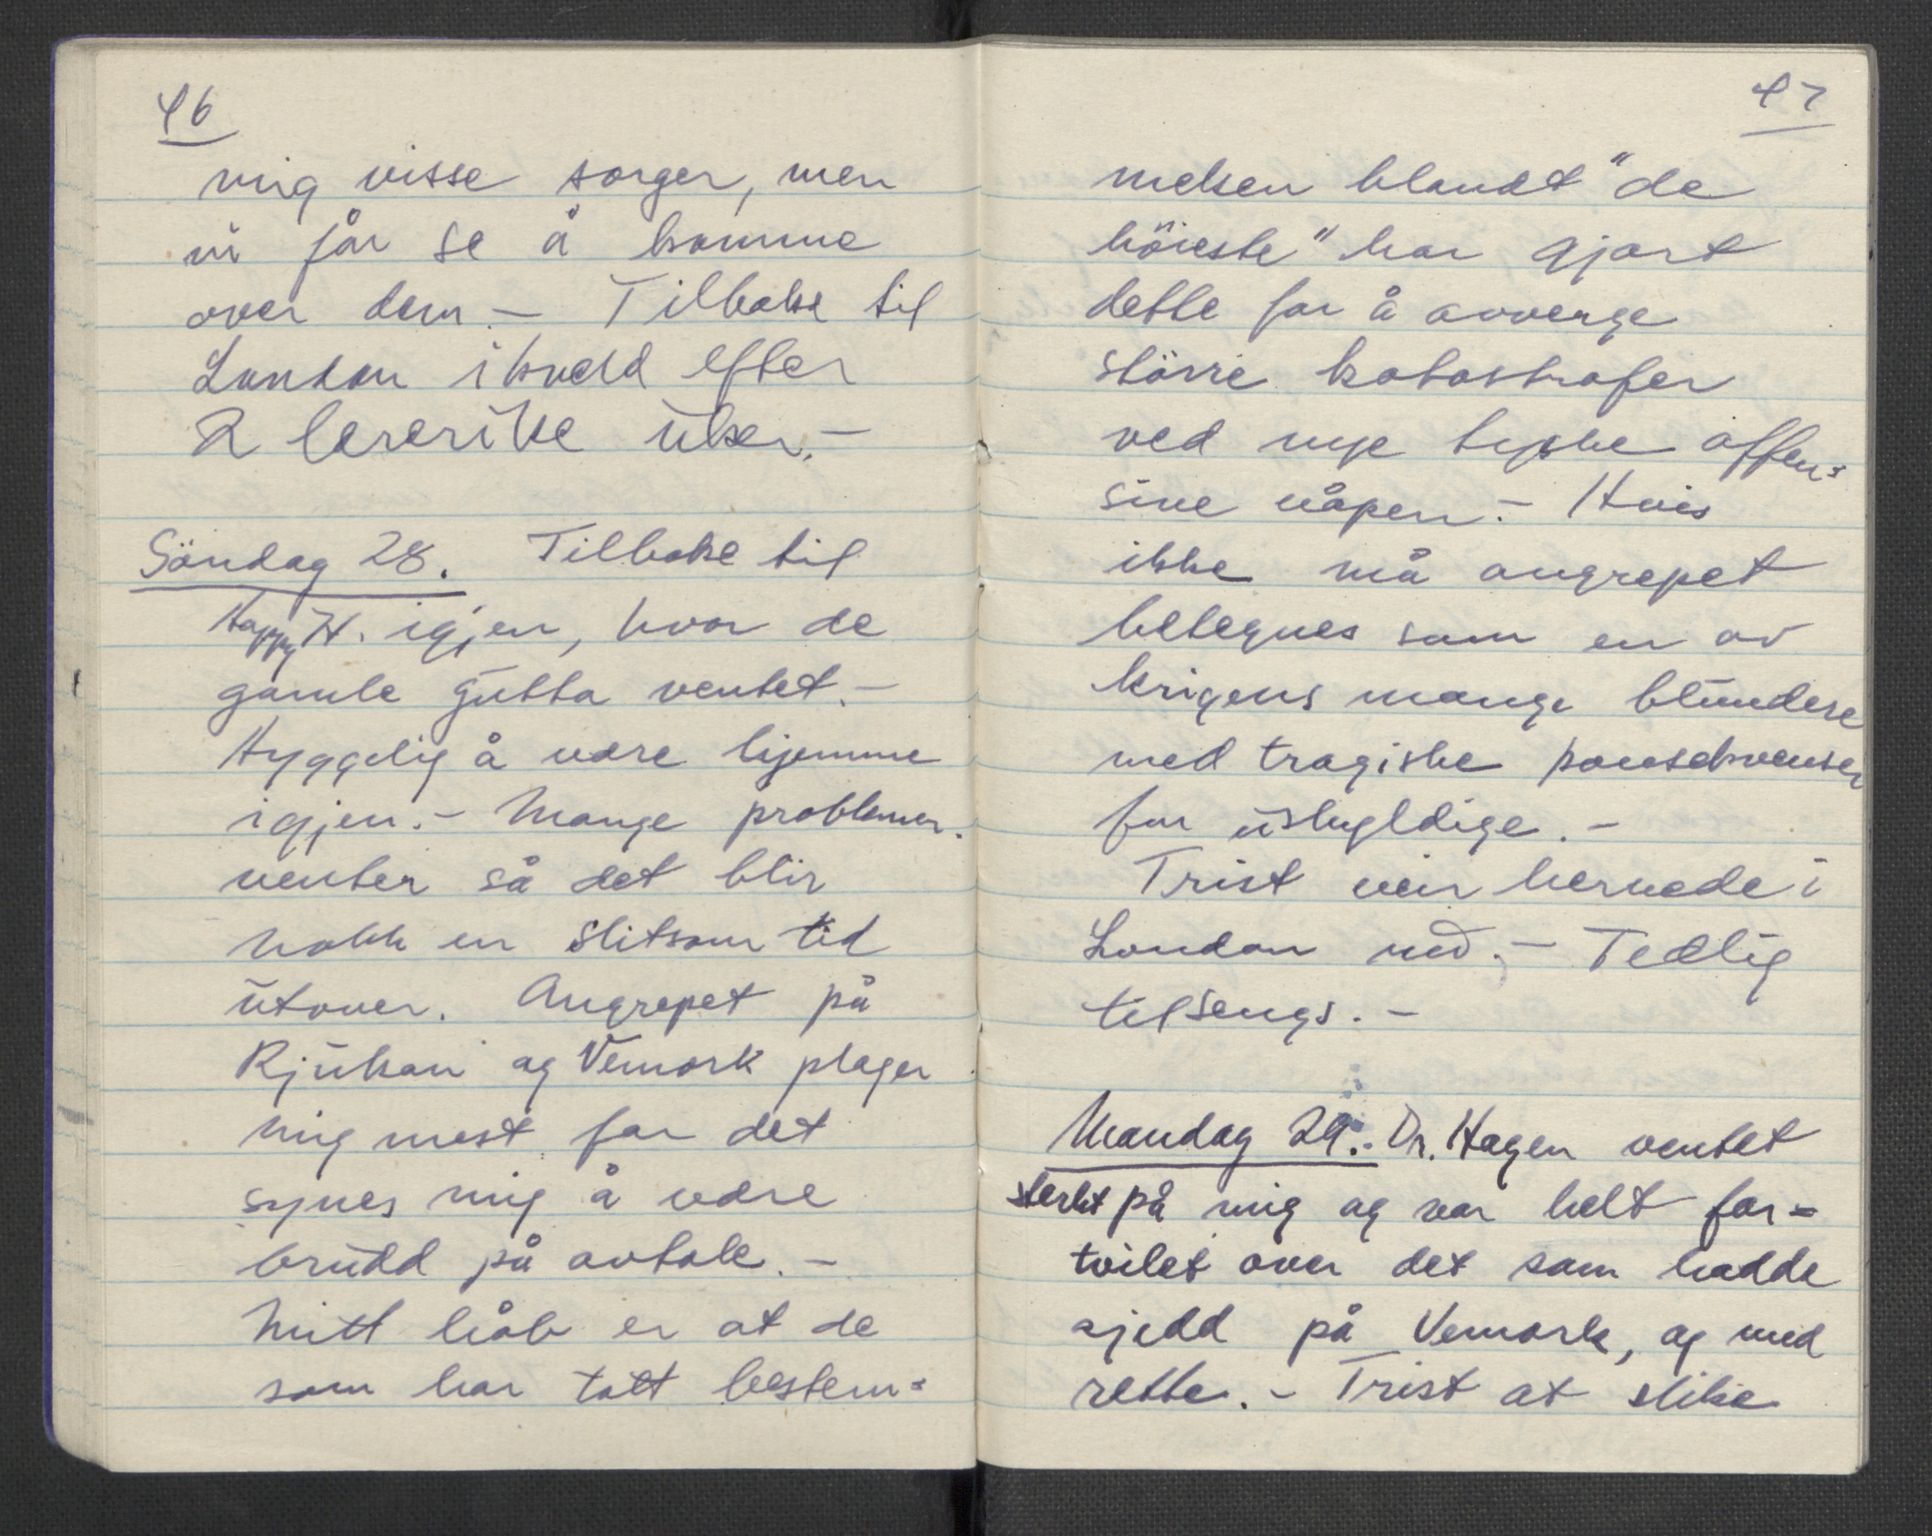 46
mig visse sorger, men
vi får se å komme
over dem. – Tilbake til
London ikveld efter
2 lærerike uker. –
Söndag 28. Tilbake til
Happy H. igjen, hvor de
gamle gutta ventet. –
Hyggelig å være hjemme
igjen. – Mange problemer
venter så det blir
nokk en slitsom tid
utover. Angrepet på
Rjukan og Vemork plager
mig mest for det
synes mig å være
brudd på avtale. –
Mitt håb er at de
som har tatt bestem=
47
melsen blandt "de
höieste" har gjort
dette for å avverge
större katastrofer
ved nye tyske offen=
sive våpen. – Hvis
ikke må angrepet
betegnes som en av
krigens mange blundere
med tragiske konsekvenser
for uskyldige. –
Trist veir hernede i
London nu. – Tedlig
tilsengs. –
Mandag 29. Dr. Hagen ventet
sterkt på mig og var helt for=
tvilet over det som hadde
sjedd på Vemork, og med
rette. – Trist at slike